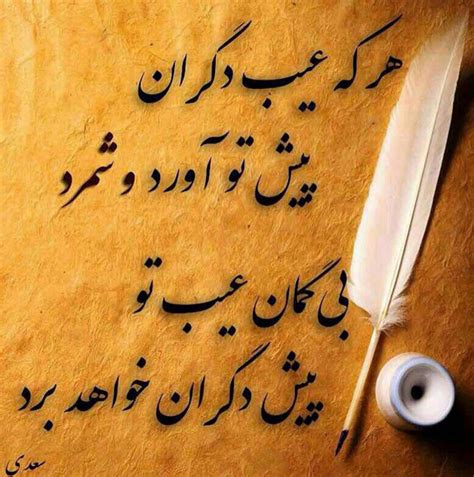 هر که عیب دگران
پیش تو آورد و شمرد
بی گمان عیب تو
پیش دگران خواهد برد
سعدی